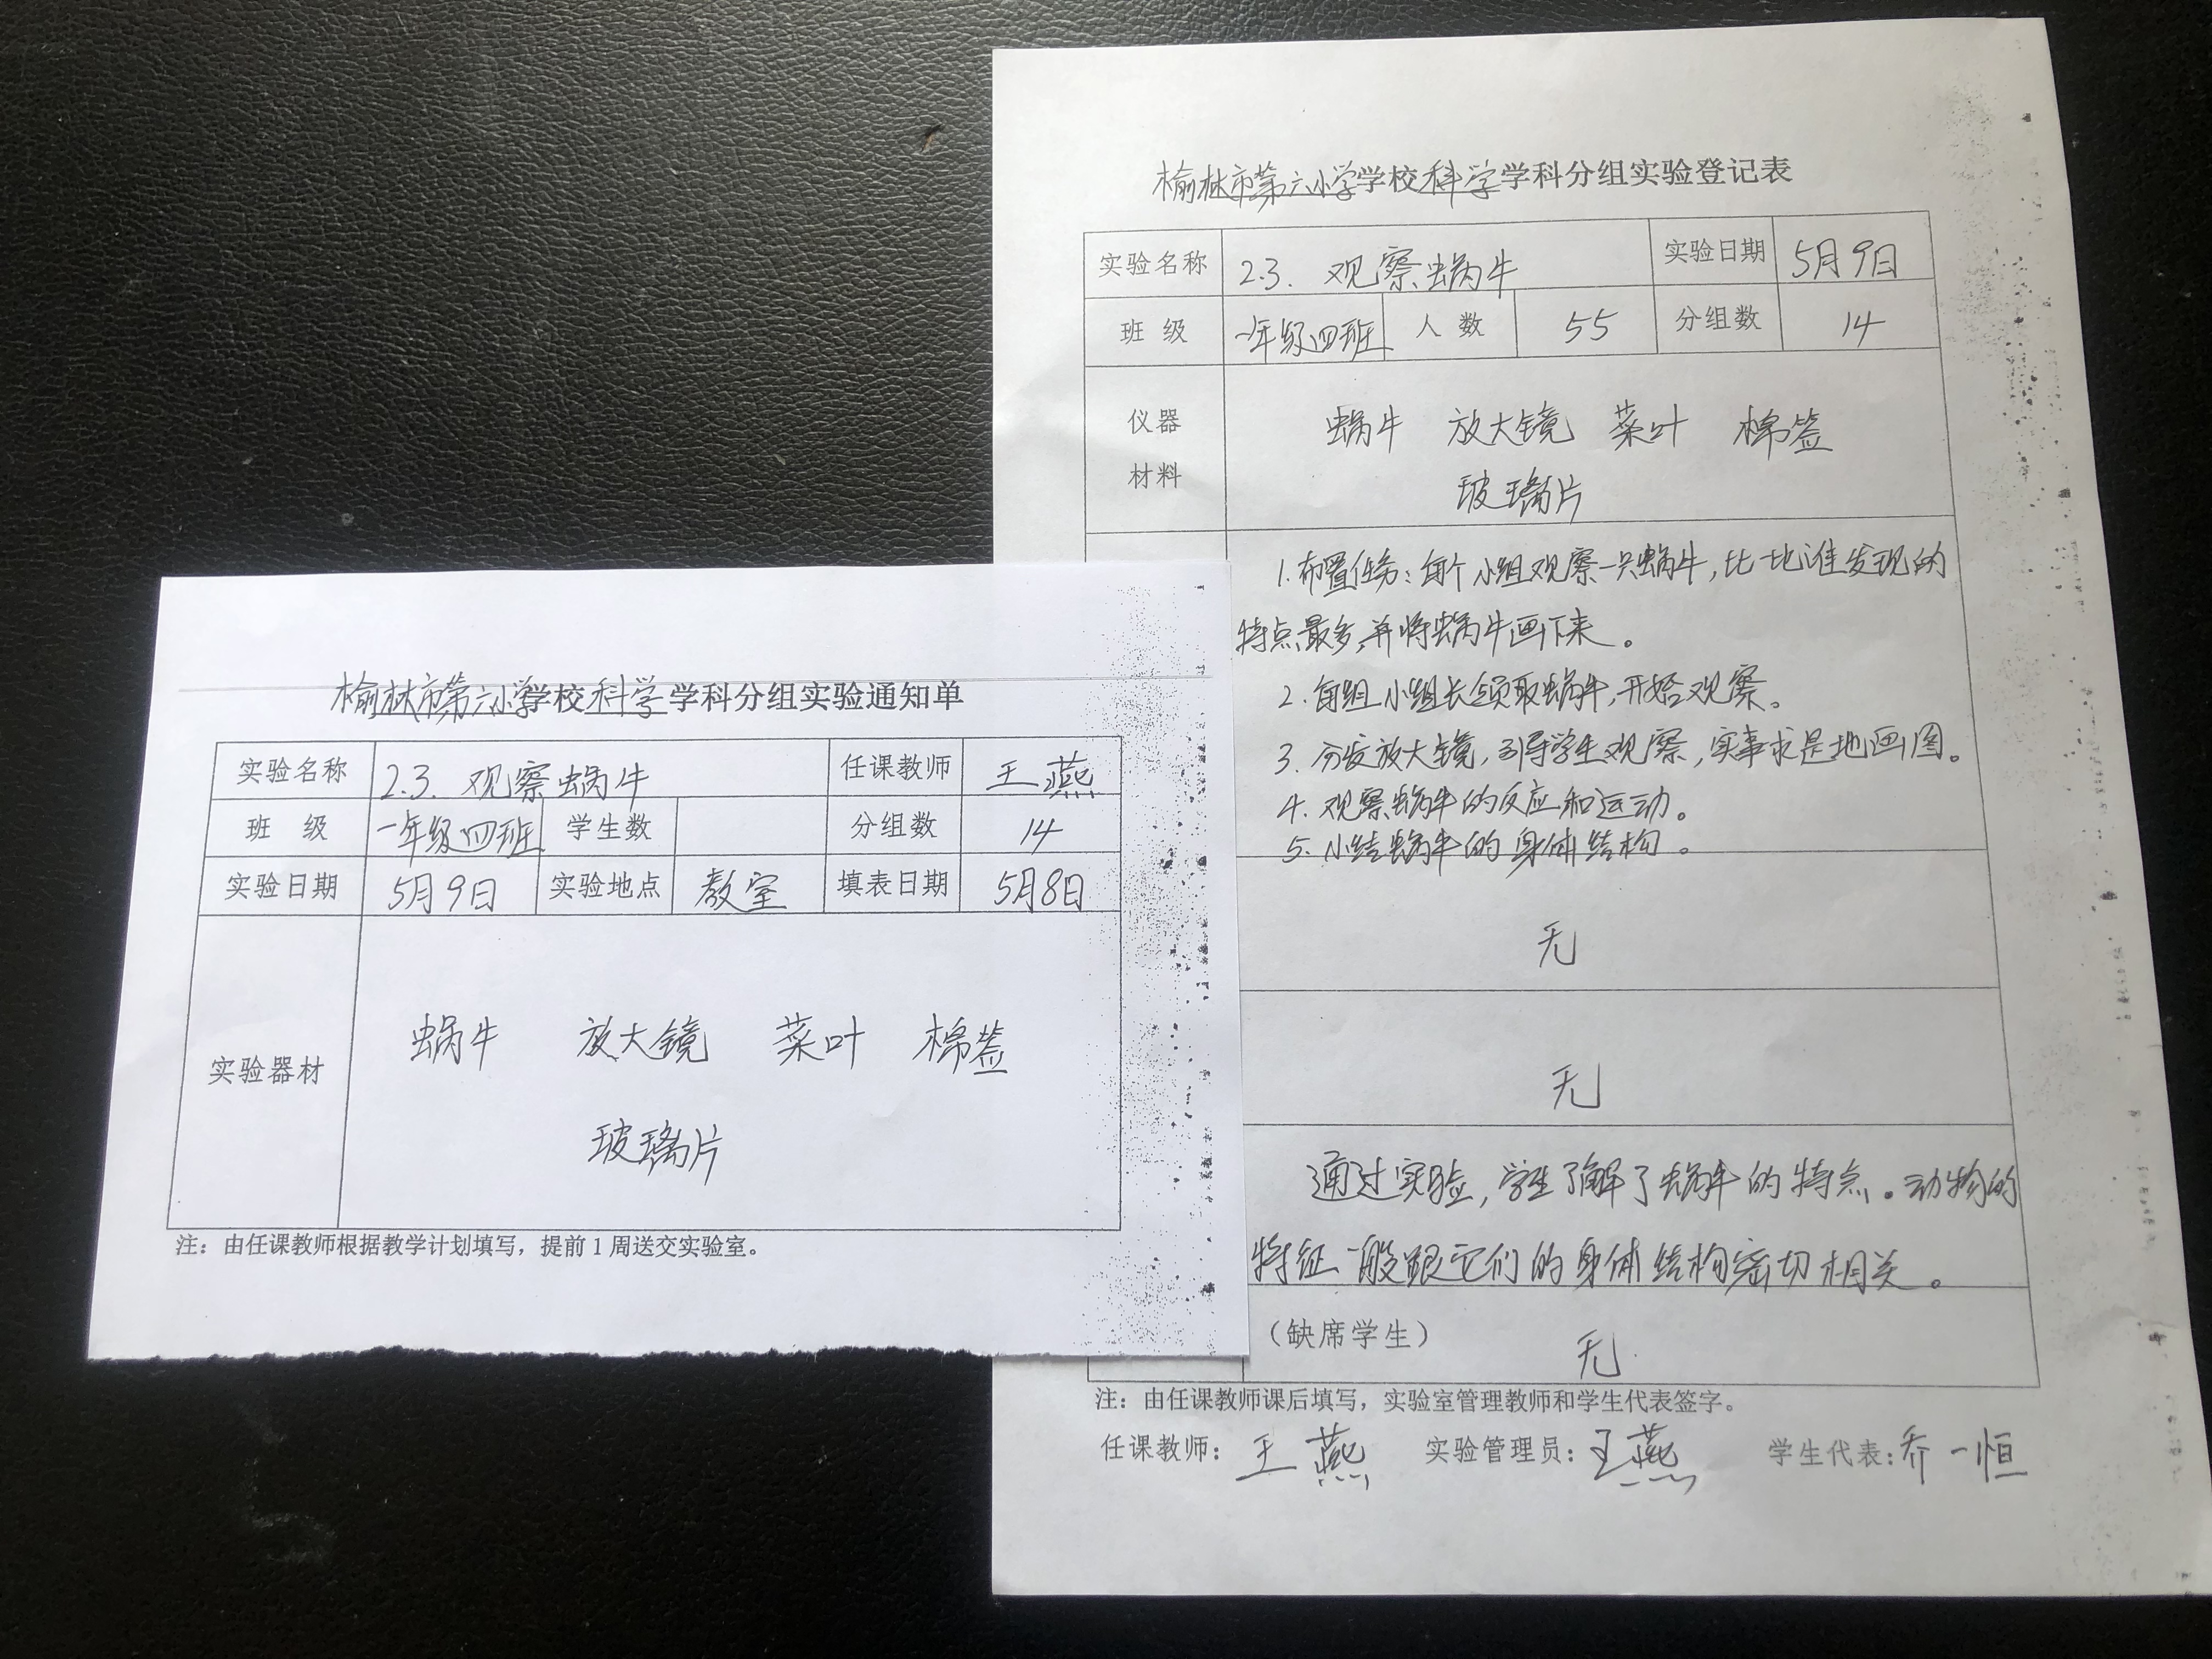 榆林市第六小学学校科学学科分组实验通知单
实验名称 2.3. 观察蜗牛 任课教师 王燕
班 级 一年级四班 学生数 分组数 14
实验日期 5月9日 实验地点 教室 填表日期 5月8日
实验器材 蜗牛 放大镜 菜叶 棉签
玻璃片
注：由任课教师根据教学计划填写，提前1周送交实验室。
榆林市第六小学学校科学学科分组实验登记表
实验名称 2.3. 观察蜗牛 实验日期 5月9日
班 级 一年级四班 人 数 55 分组数 14
仪器
材料
蜗牛 放大镜 菜叶 棉签
玻璃片
1. 布置任务：每个小组观察一只蜗牛，比一比谁发现的
特点最多，并将蜗牛画下来。
2. 每组小组长领取蜗牛，开始观察。
3. 分发放大镜，引导学生观察，实事求是地画图。
4. 观察蜗牛的反应和运动。
5. 小结蜗牛的身体结构。
无
无
通过实验，学生了解了蜗牛的特点。动物的
特征一般跟它们的身体结构密切相关。
（缺席学生） 无
注：由任课教师课后填写，实验室管理教师和学生代表签字。
任课教师：王燕 实验管理员：王燕 学生代表：乔一恒